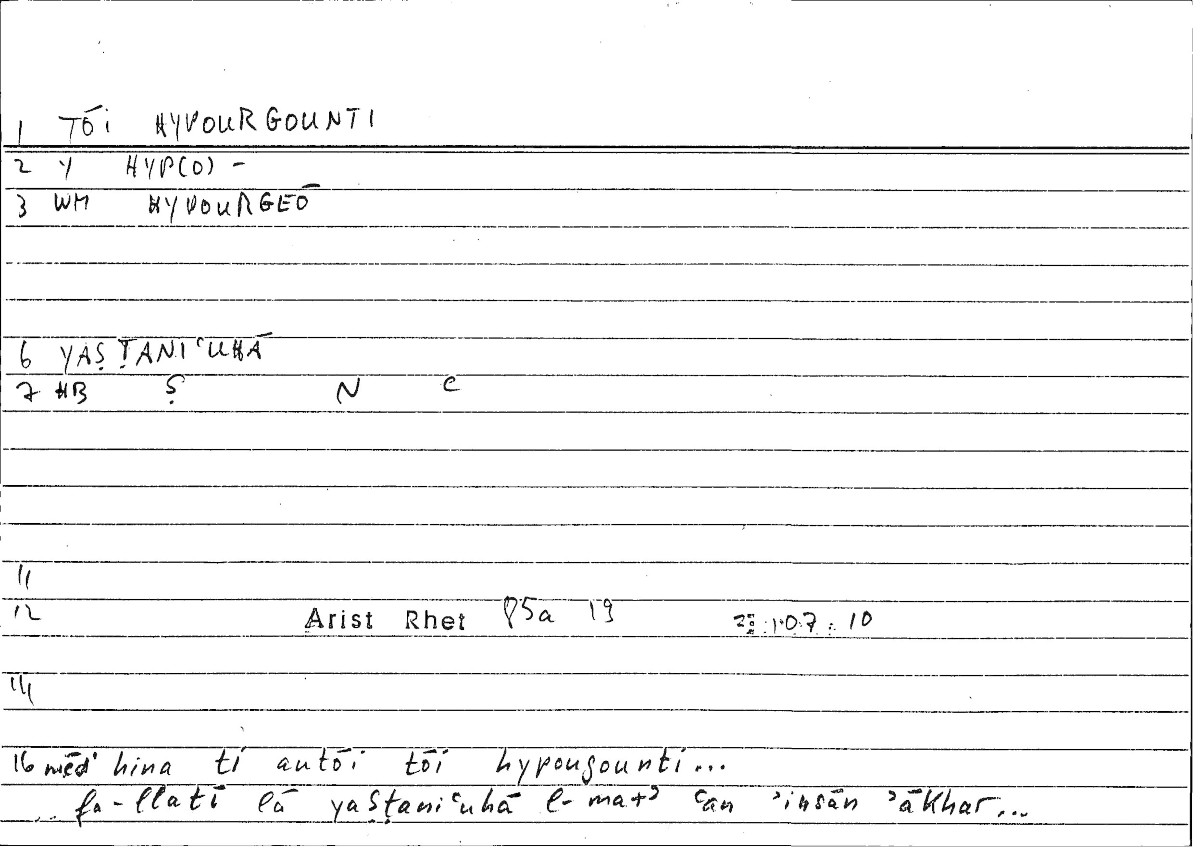 1 TŌI HYPOURGOUNTI
2 Y HYP(O) -
3 WM HYPOURGEŌ
6 YAṢṬANIʿUHĀ
7 HB Ṣ N ʿ
11
12 Arist Rhet 85a 19 107 10
14
16 mēd' hina ti autōi tōi hypougounti...
... fa-llatī lā yaṣṭaniʿuhā l-marʾ ʿan ʾinsān ʾākhar...